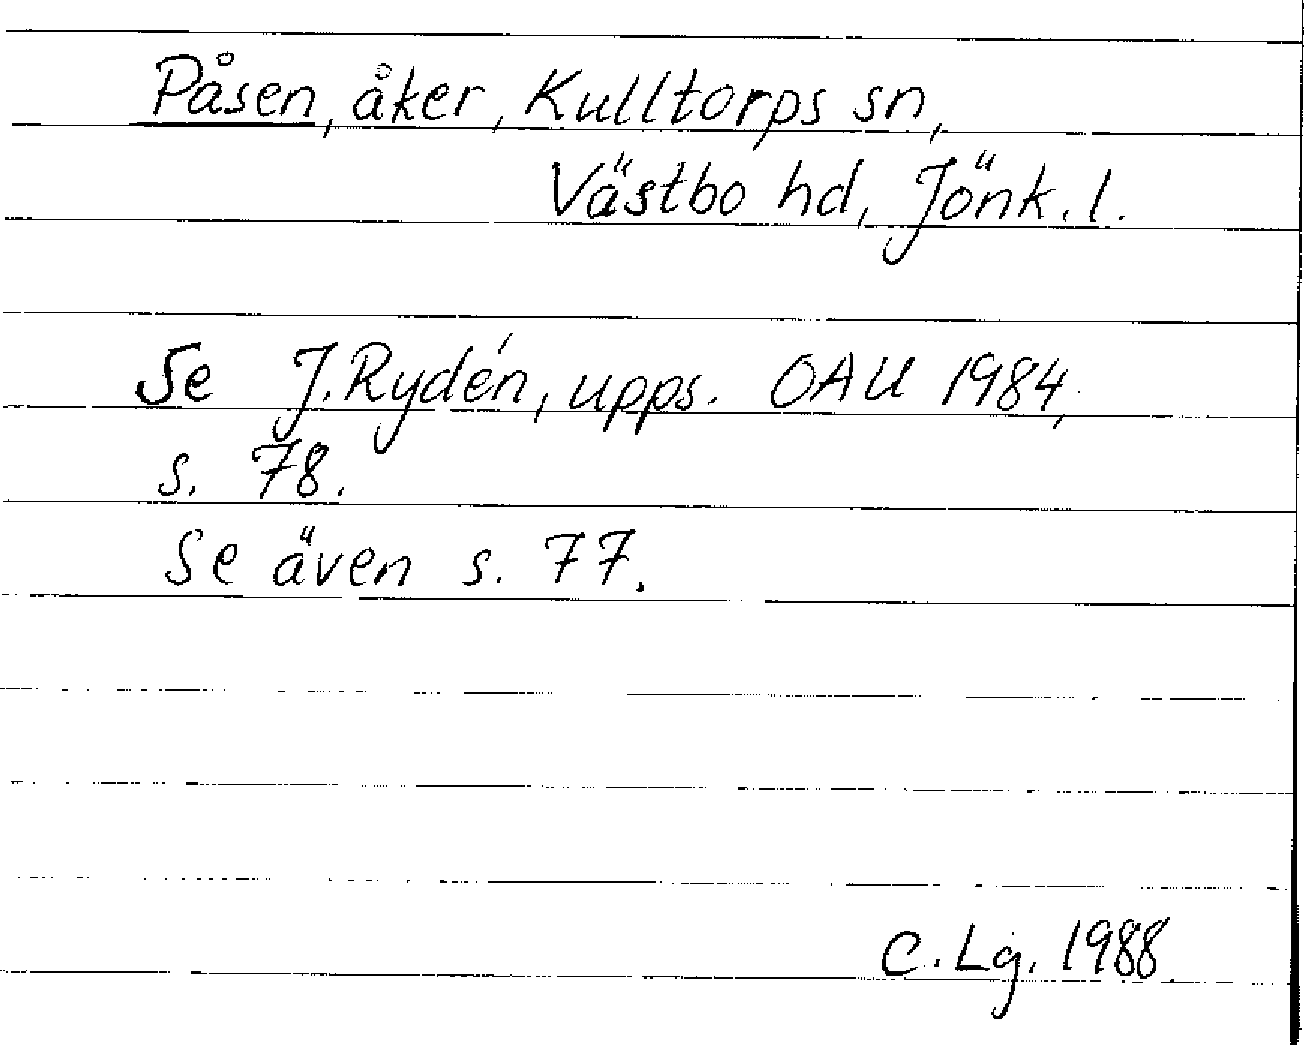 Påsen, åker, Kulltorps sn,
Västbo hd, Jönk. l.
Se J. Rydén, upps. OAU 1984,
s. 78.
Se även s. 77.
C. Lg. 1988.